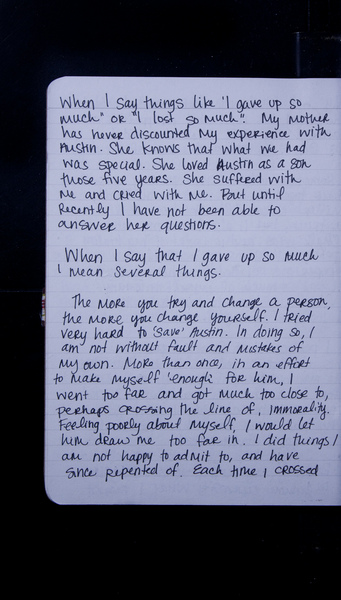 When I say things like "I gave up so
much" or "I lost so much". My mother
has never discounted my experience with
Austin. She knows that what we had
was special. She loved Austin as a son
those five years. She suffered with
me and cried with me. But until
recently I have not been able to
answer her questions.
When I say that I gave up so much
I mean several things.
The more you try and change a person,
the more you change yourself. I tried
very hard to 'save' Austin. In doing so, I
am not without fault and mistakes of
my own. More than once, in an effort
to make myself 'enough' for him, I
went too far and got much too close to,
perhaps crossing the line of, immorality.
Feeling poorly about myself, I would let
him draw me too far in. I did things I
am not happy to admit to, and have
since repented of. Each time I crossed